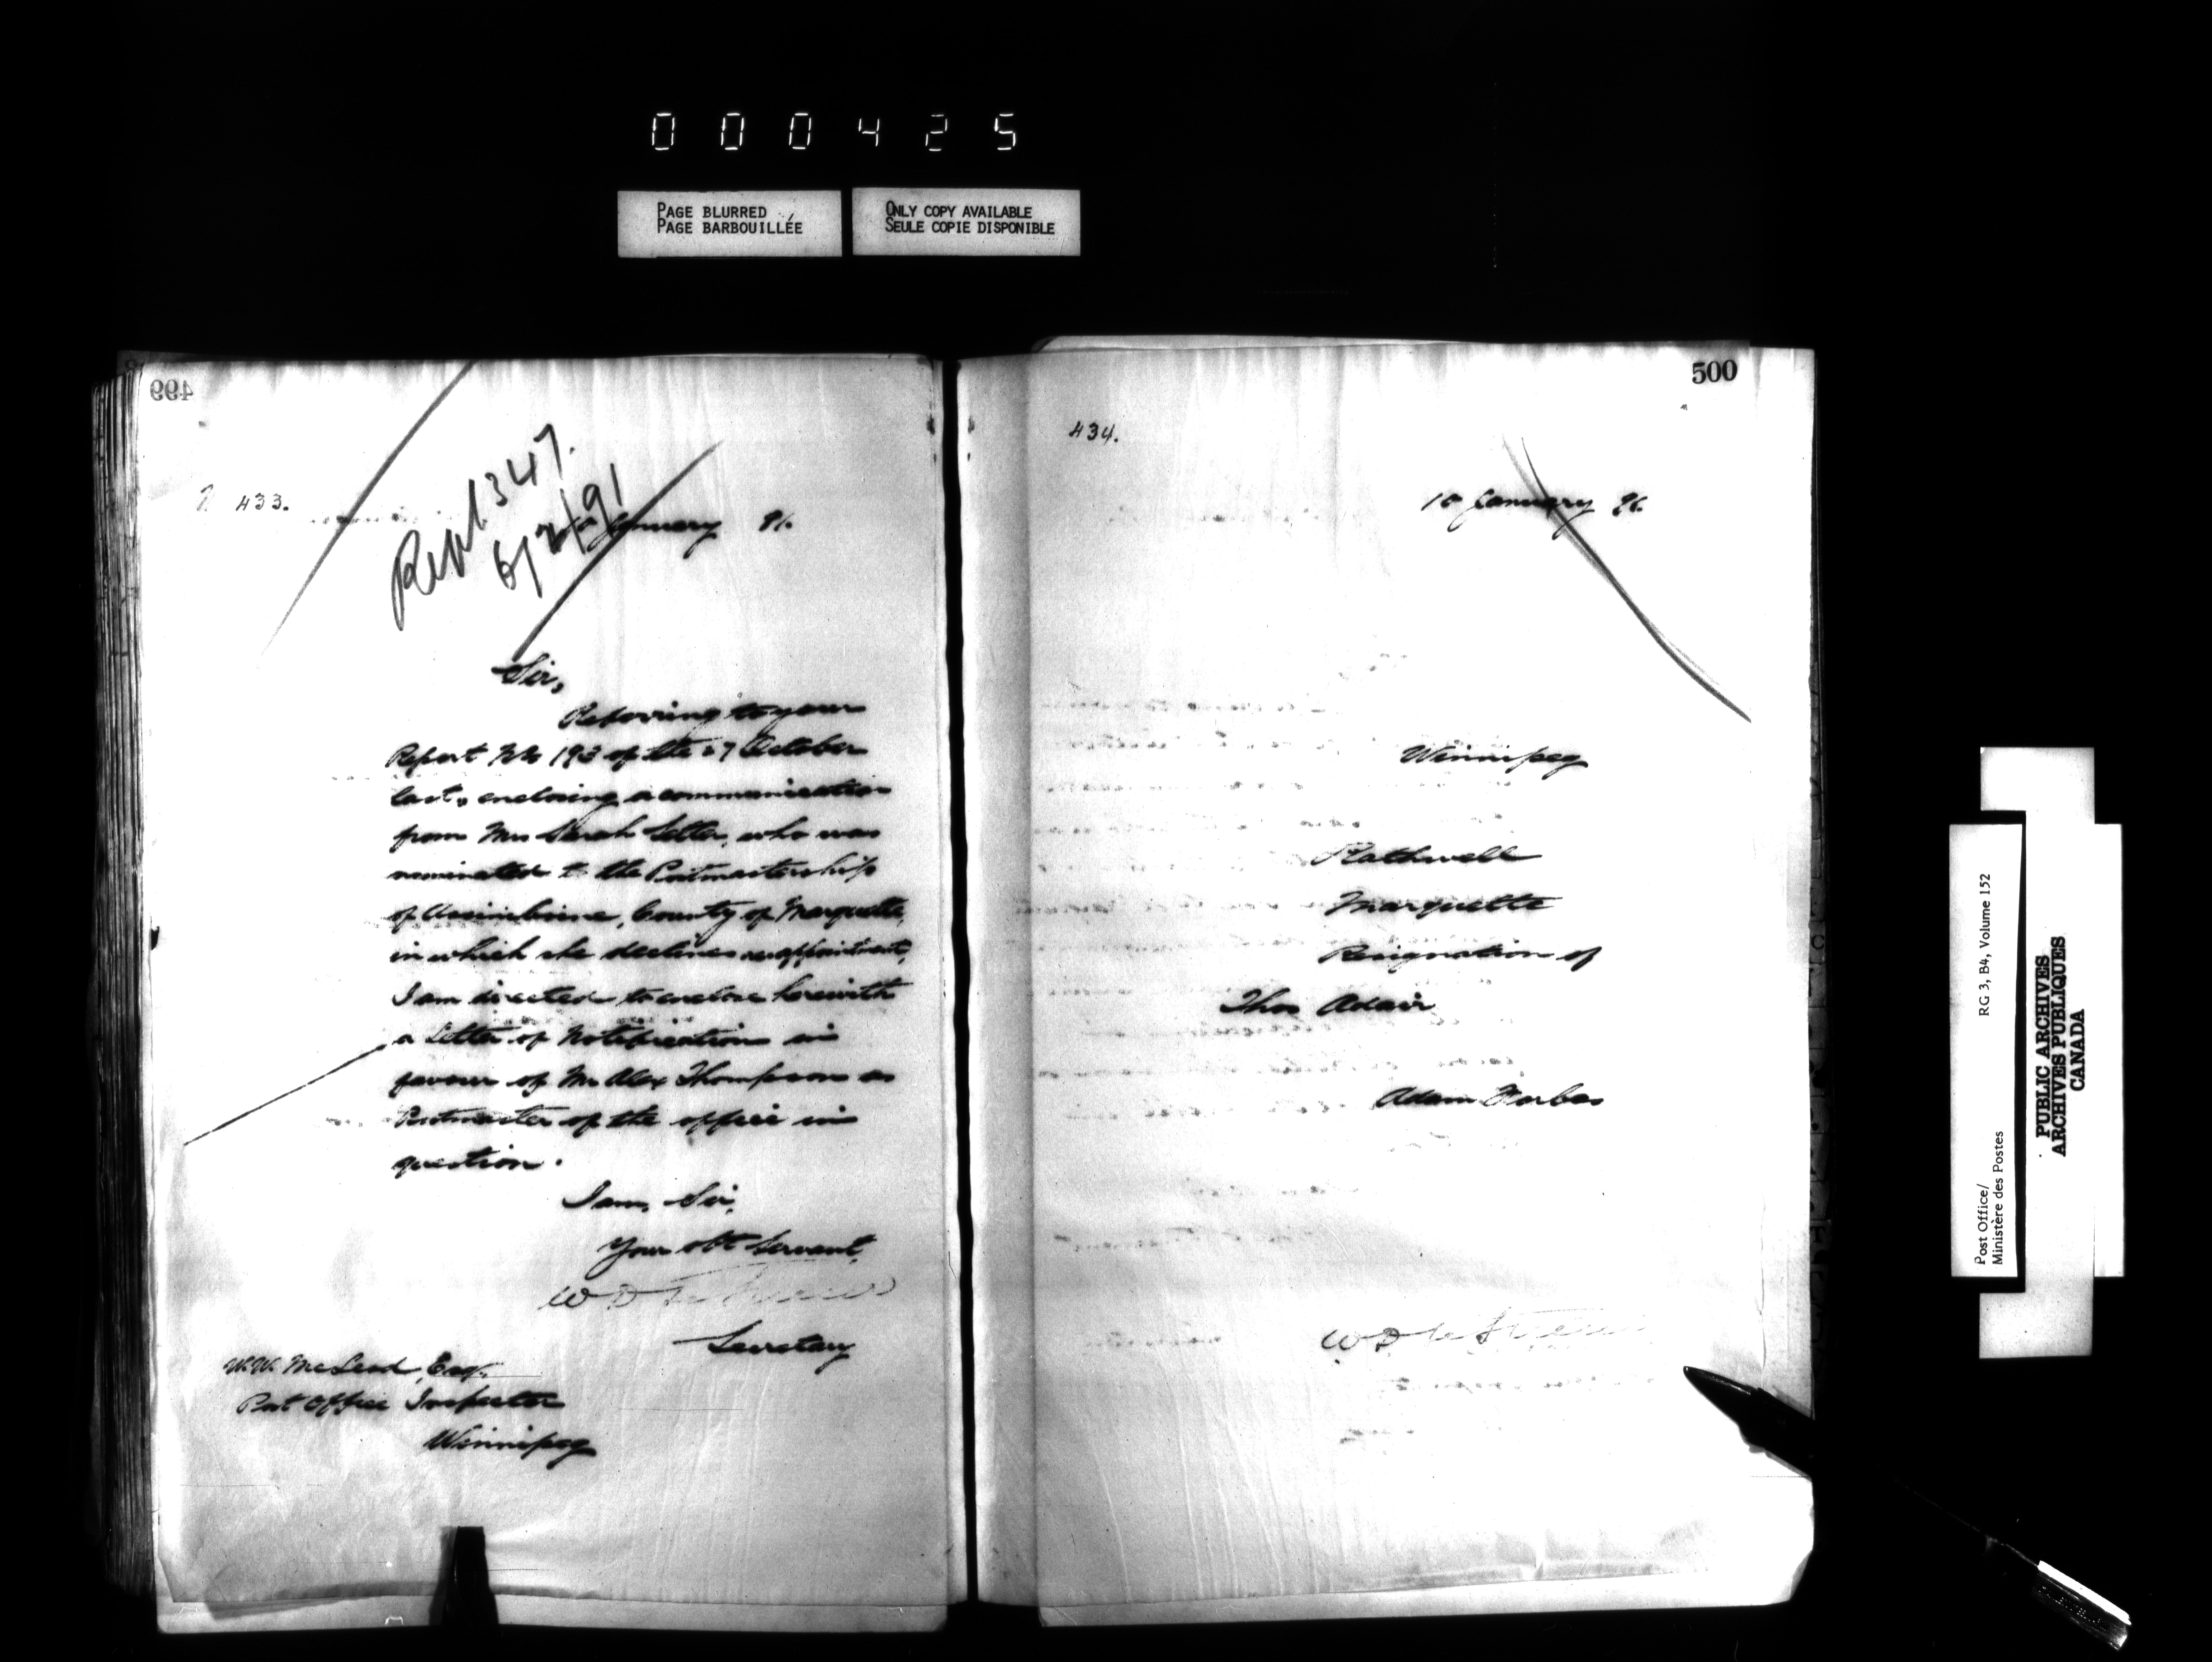 000425
PAGE BLURRED
PAGE BARBOUILLÉE
ONLY COPY AVAILABLE
SEULE COPIE DISPONIBLE
499
433.
Rept 1347.
6/2/91
10 January 91.
Sir,
Referring to your
Report No 193 of the 27 October
last, enclosing a communication
from Mrs Sarah Setter, who was
nominated to the Postmastership
of Assiniboine, County of Marquette,
in which she declines appointment,
I am directed to enclose herewith
a Letter of Notification in
favour of Mr Alex Thompson as
Postmaster of the office in
question.
I am, Sir,
Your obt Servant,
W D LeSueur
Secretary
W.W. McLeod, Esq.
Post Office Inspector
Winnipeg
500
434.
10 January 91.
Winnipeg
Rathwell
Marquette
Resignation of
Thos Adair
Adam Forbes
W D LeSueur
Post Office/
Ministère des Postes
RG 3, B4, Volume 152
PUBLIC ARCHIVES
ARCHIVES PUBLIQUES
CANADA